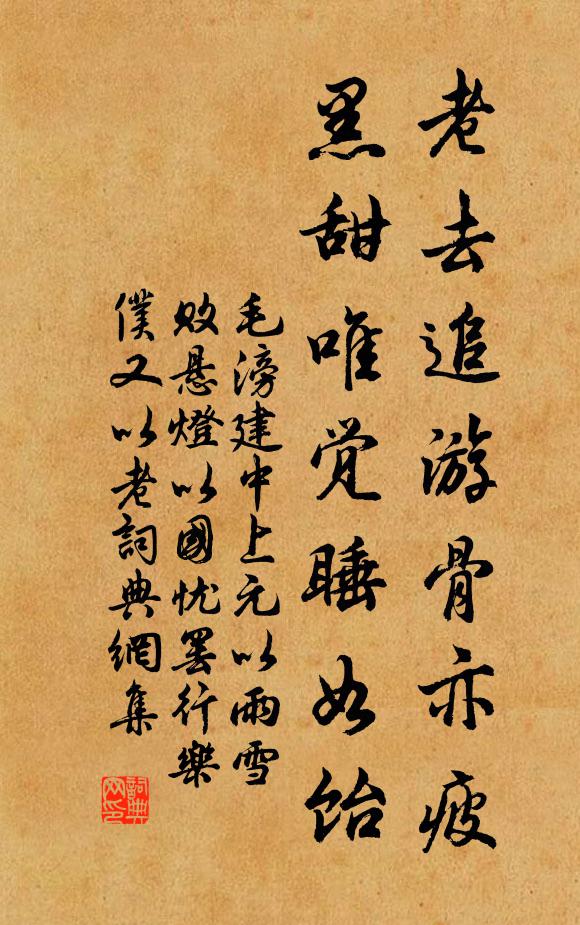 老去追游骨亦疲
黑甜唯觉睡如饴
毛滂建中上元以雨雪
败悬燈以國忧罢行樂
僕又以老詞典網集
詞典網印